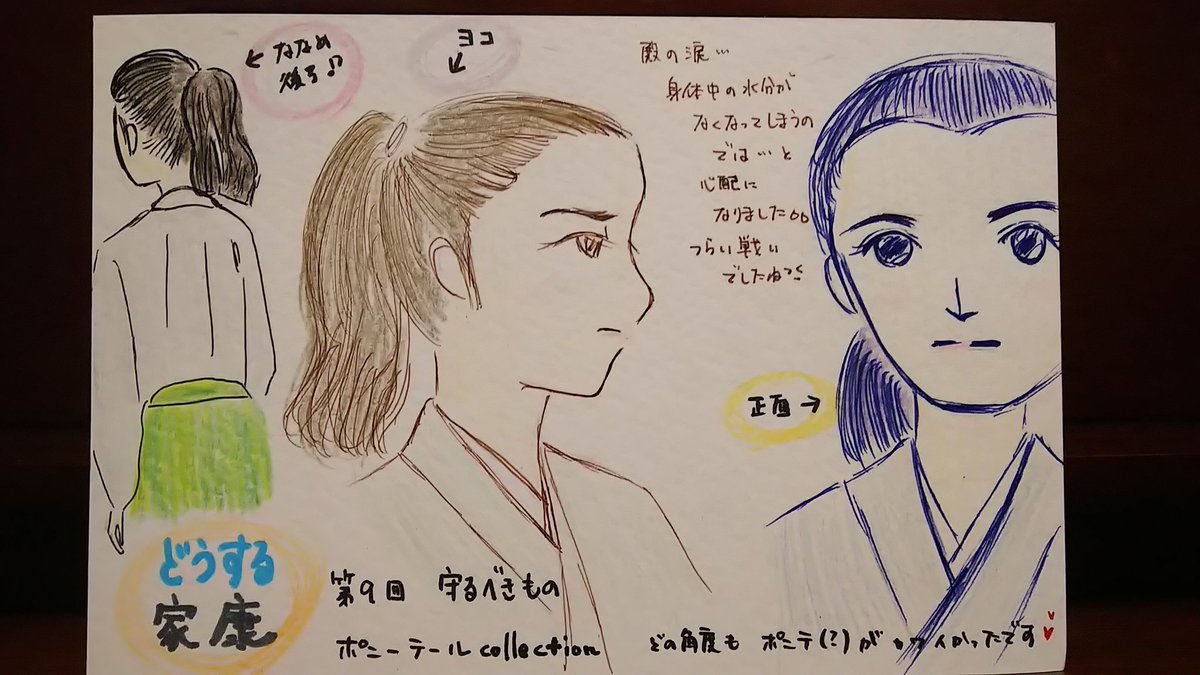 ← ななめ
後ろ♪
ヨコ
↙
殿の涙…
身体中の水分が
なくなってしまうの
では…と
心配に
なりました
つらい戦い
でしたねっ
正面→
どうする
家康
第9回 守るべきもの
ポニーテール collection どの角度も ポニテ(?)が カワイかったです♥